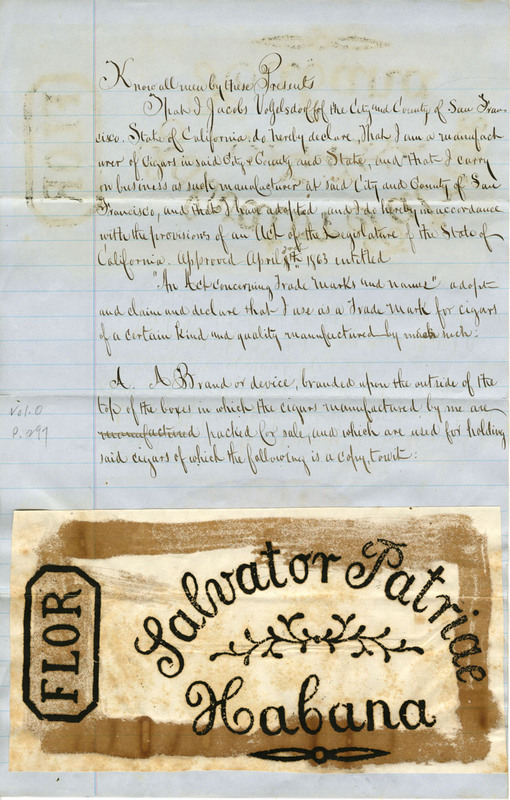 Know all men by these Presents
That I Jacobs Voglsdorff of the City and County of San Fran-
cisco. State of California, do hereby declare, That I am a manufact
urer of cigars in said City & County and State, and that I carry
on business as such manufacturer at said City and County of San
Francisco, and that I have adopted and I do hereby in accordance
with the provisions of an Act of the Legislature of the State of
California. Approved April 1863 entitled
"An Act concerning Trade Marks and names" adopt
and claim and declare that I use as a Trade Mark for cigars
of a certain kind and quality manufactured by such:
A. A Brand or device, branded upon the outside of the
top of the boxes in which the cigars manufactured by me are
manufactured packed for sale, and which are used for holding
said cigars of which the following is a copy towit:
Vol. O
P. 297
FLOR
Salvator Patriae
Habana